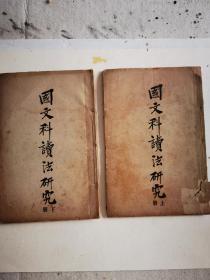 國文科讀法研究
上冊
國文科讀法研究
下冊